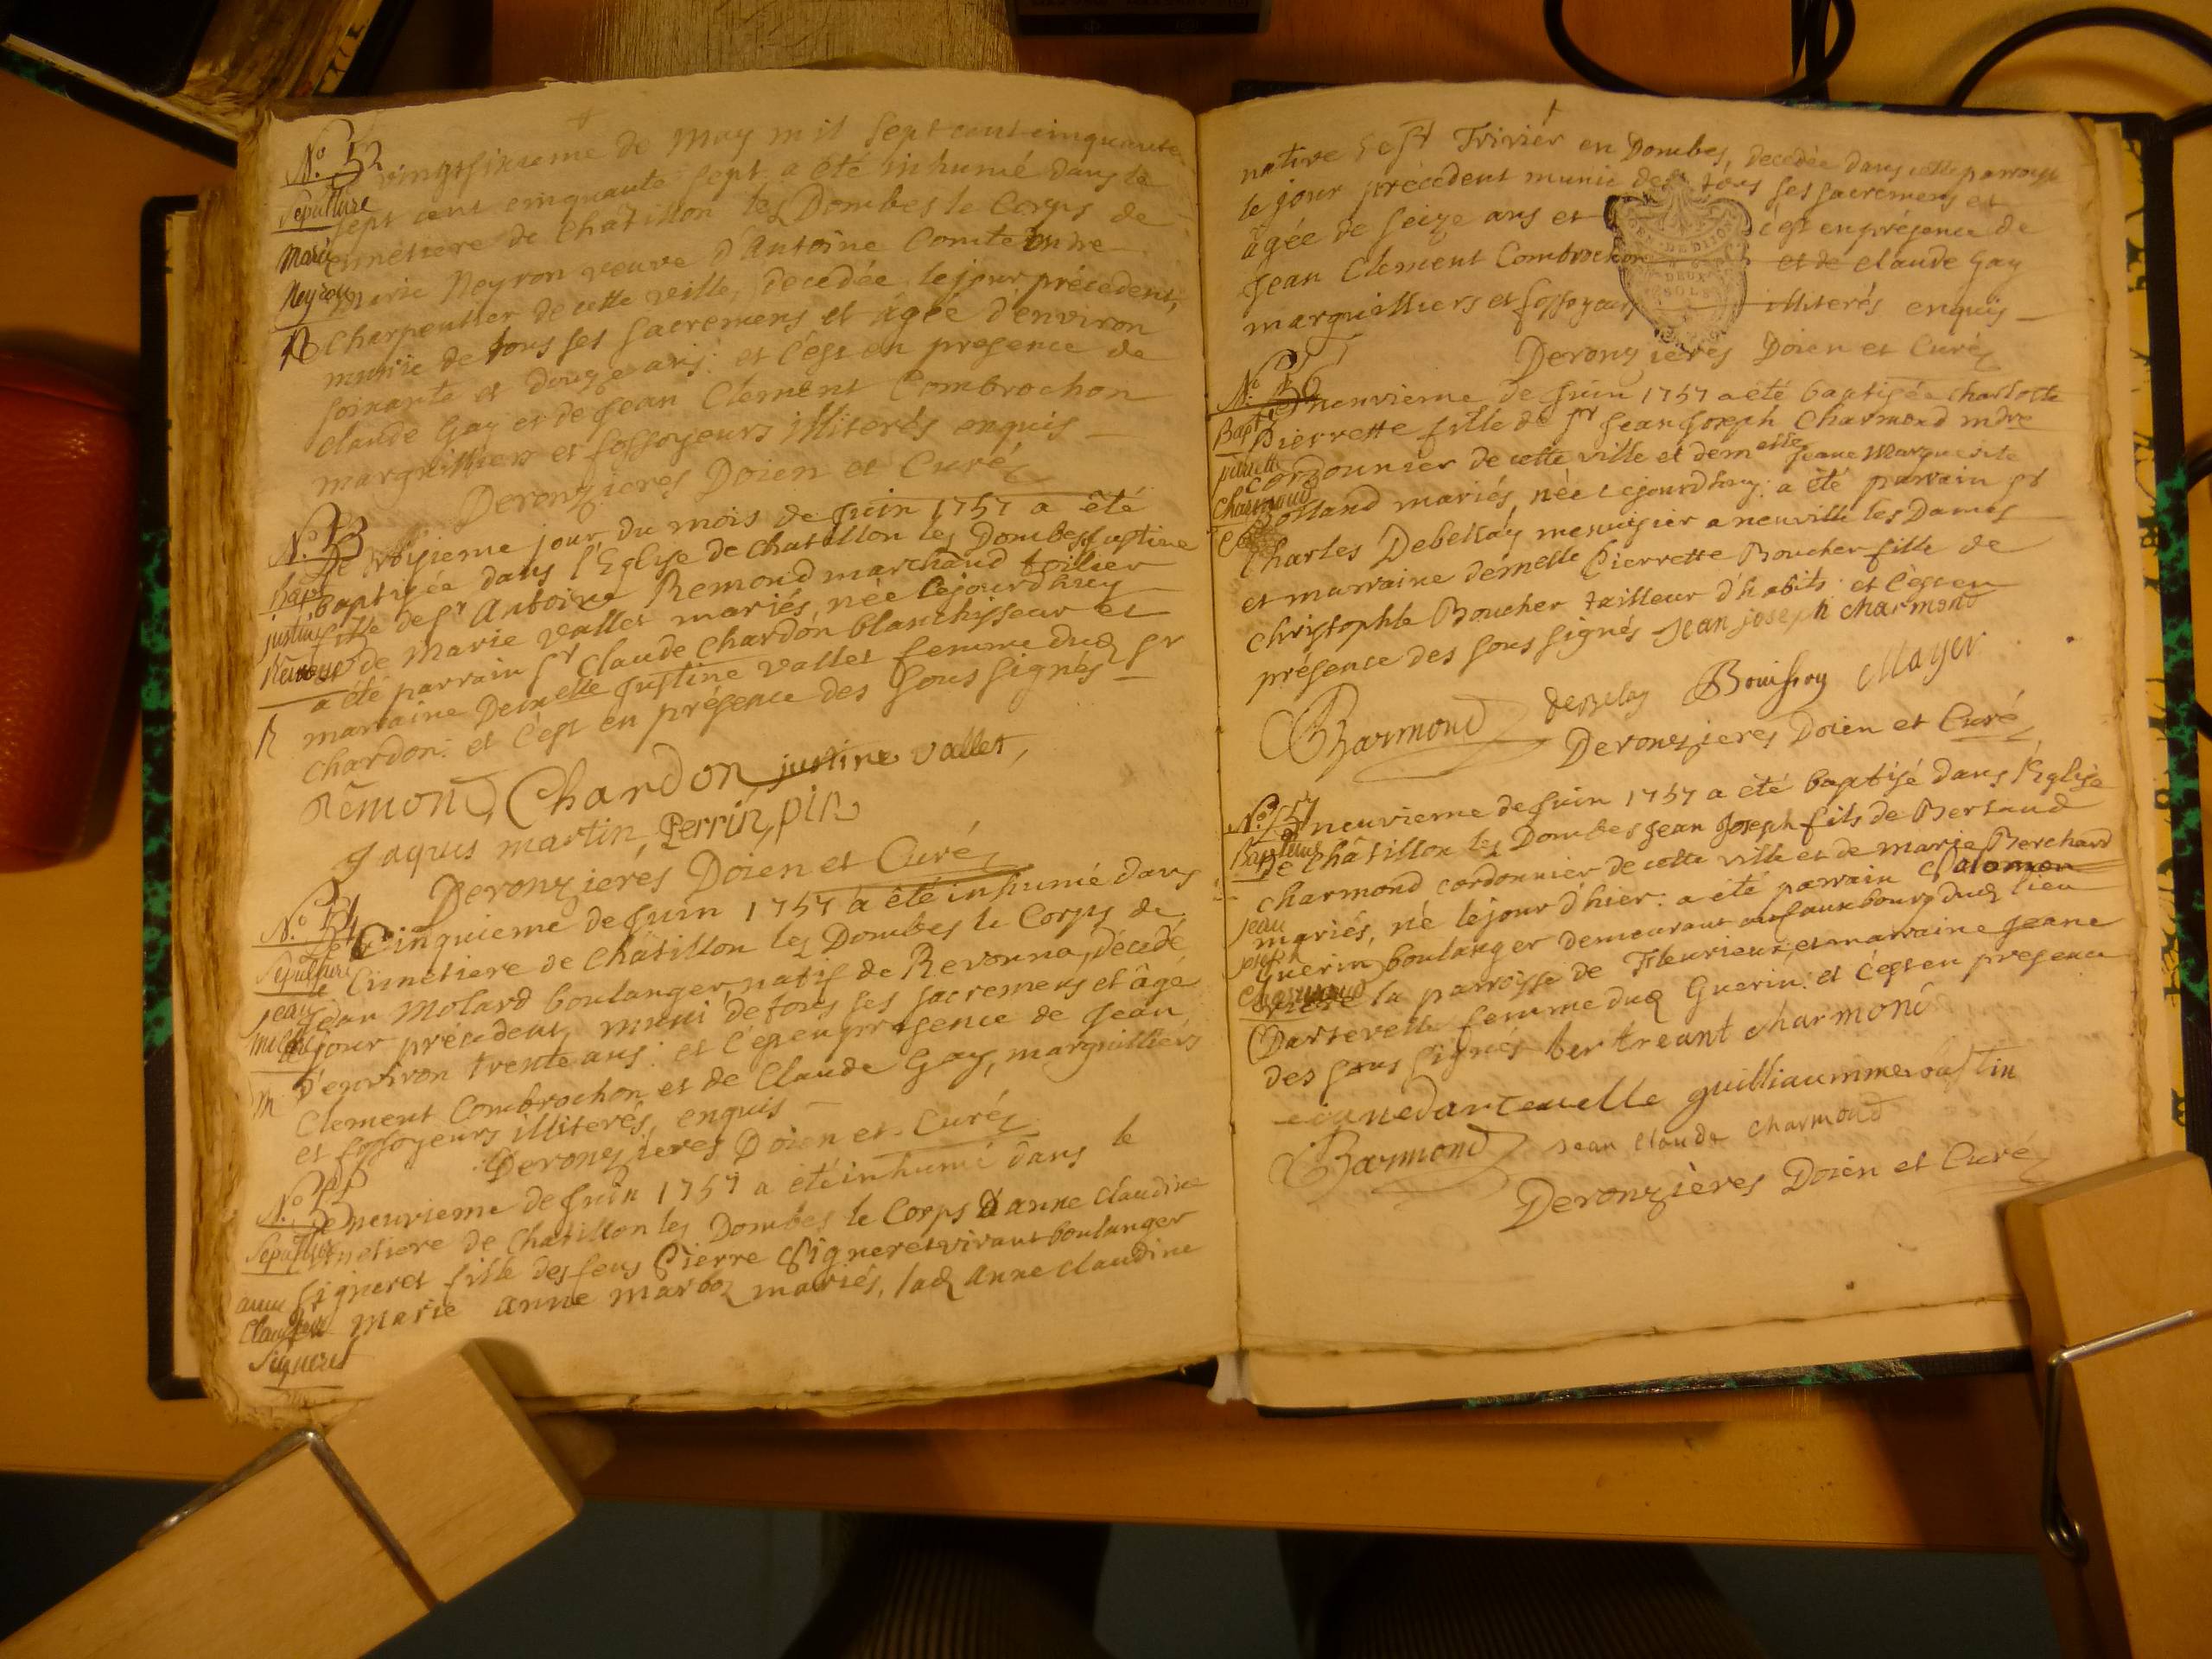 N.º 52
Sepulture
Marie
Neyron
vingtsixieme de may mil sept cent cinquante
sept cent cinquante sept a été inhumé dans le
cimétiere de Châtillon les Dombes le Corps de
marie Neyron veuve d'Antoine Comte mdre
charpentier de cette ville, decedée le jour précédent,
munie de tous ses sacremens et âgée d'environ
soixante et douze ans: et c'est en presence de
claude Gay et de Jean Clement Combrochon
marguilliers et fossoyeurs illiterés enquis
Deronzieres Doien et Curé
N.º 53
Bapt
justine
Remond
R
Le troisieme jour du mois de Juin 1757 a été
baptisée dans l'Eglise de chatillon les Dombes justine
fille de sr Antoine Remond marchand toilier
et de Marie Vallet mariés, née cejourdhuy
a été parrain sr Claude Chardon blanchisseur et
marraine Demelle Justine Vallet femme dud sr
chardon: et c'est en présence des sous signés
Rémond, Chardon justine vallet,
Jaques martin, Perrin, pin
Deronzieres Doien et Curé
N.º 54
Sepulture
jean
molard
m
Le Cinquieme de Juin 1757 a été inhumé dans
le Cimétiere de Châtillon les Dombes le Corps de
Jean Molard boulanger, natif de Revonna, décédé
le jour précédent, muni de tous ses sacremens et âgé
d'environ trente ans: et c'est en presence de Jean
Clement Combrochon et de Claude Gay, marguilliers
et fossoyeurs illiterés, enquis
Deronzieres Doien et Curé
N.º 55
Sepulture
anne
Claudine
Signeret
Le neuvieme de Juin 1757 a été inhumé dans le
cimétiere de Chatillon les Dombes le Corps d'anne claudine
Signeret fille des feus Pierre Signeret vivant boulanger
et marie anne marboz mariés, lad anne claudine
native de St Trivier en Dombes, decédée dans cette parroisse
le jour précédent munie de tous ses sacremens et
âgée de seize ans et c'est en présence de
Jean Clement Combrochon et de claude Gay
marguilliers et fossoyeurs illiterés enquis
Deronzieres Doien et Curé
N.º 56
Bapt
Charmond
Le neuvieme de Juin 1757 a été baptisée charlotte
Pierrette fille de sr Jean Joseph Charmond mdre
cordonnier de cette ville et demelle Jeane Marguerite
mariés, née cejourdhuy: a été parrain sr
Charles Debellay menuisier a neuville les Dames
et marraine demelle Pierrette Boucher fille de
christophle Boucher tailleur d'habits: et c'est en
présence des sous signés jean joseph charmond
Charmond debelay Mayer
Deronzieres Doien et Curé
N.º 57
Bapteme
jean
joseph
Charmond
Le neuvieme de Juin 1757 a été baptisé dans l'Eglise
de Châtillon les Dombes Jean Joseph fils de Bertrand
charmond cordonnier de cette ville et de marie Berchard
mariés, né le jour d'hier: a été parrain Salomon
Guerin boulanger demeurant au fauxbourg dud lieu
riere la parroisse de Fleurieux; et marraine Jeane
Dartevelle femme dud Guerin: et c'est en presence
des sous signés bertreant charmond
jeanedartevelle guilliaumme bastin
Charmond jean claude charmond
Deronzières Doien et Curé